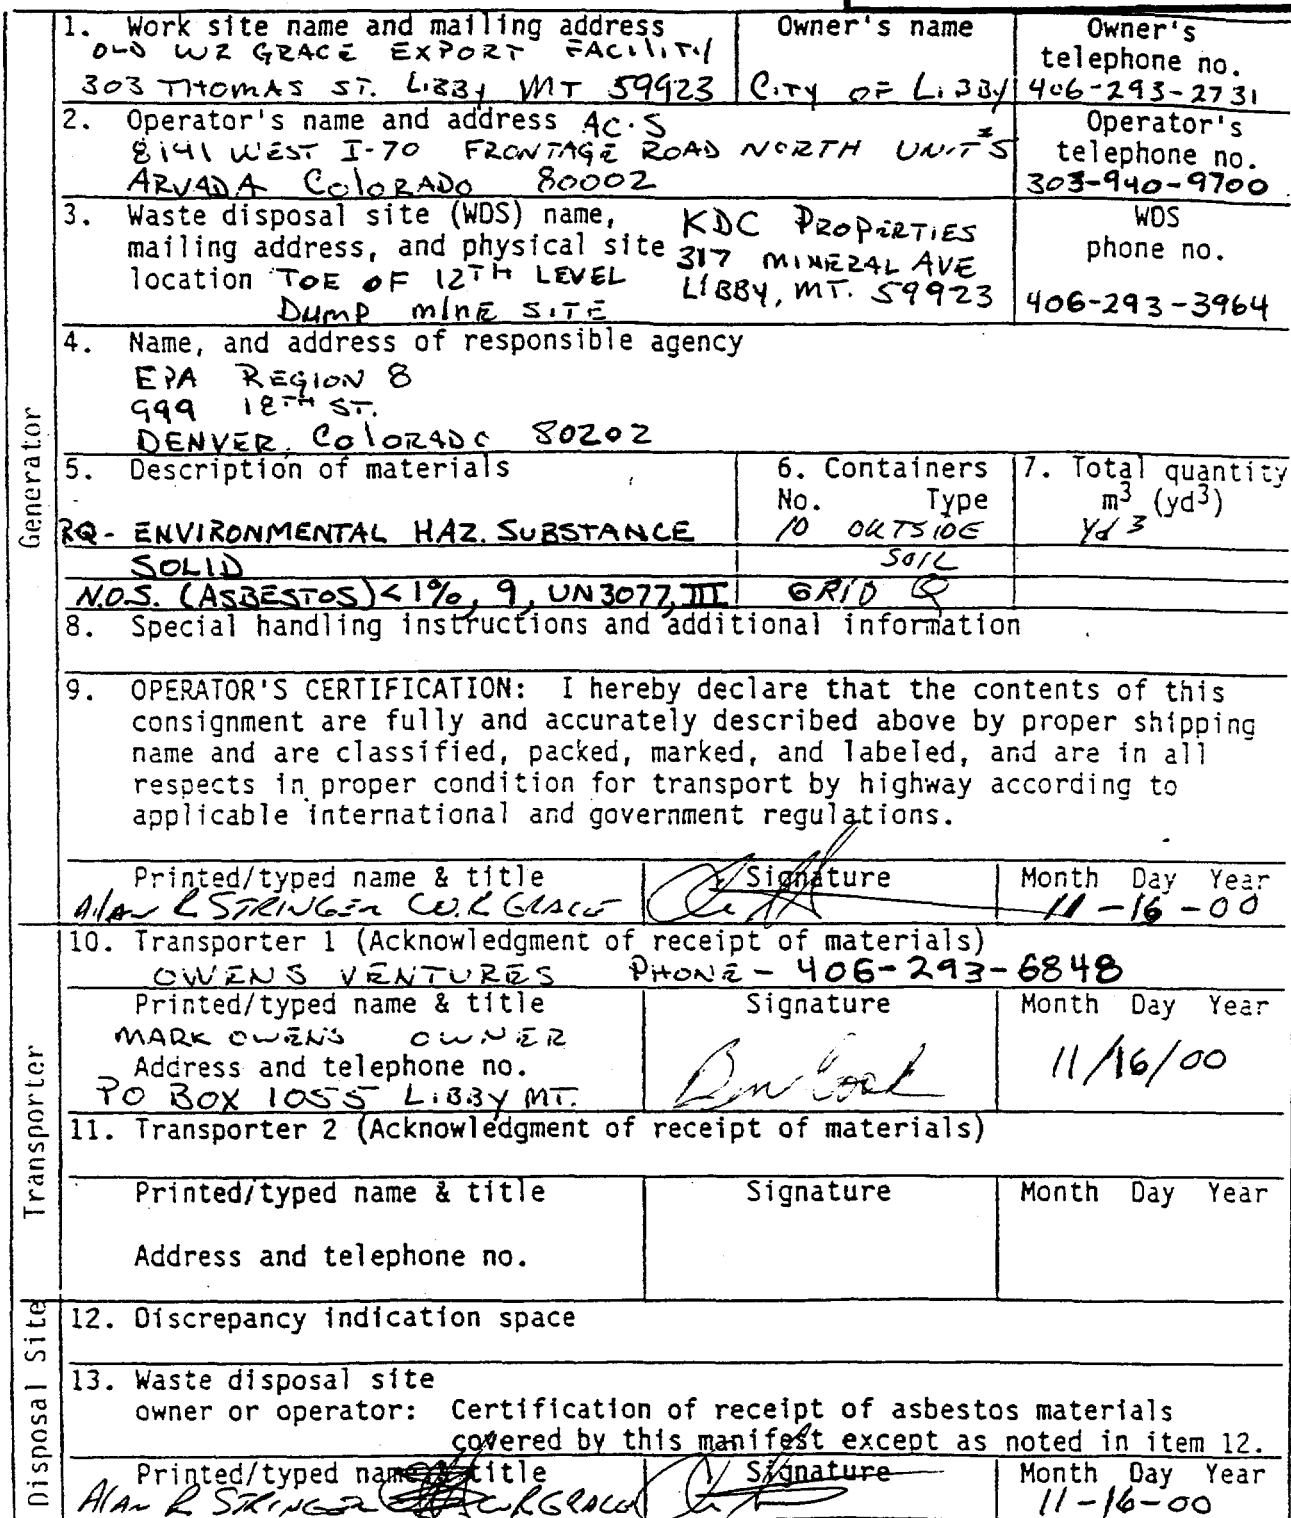 1. Work site name and mailing address
OLD WR GRACE EXPORT FACILITY
303 THOMAS ST. LIBBY MT 59923
Owner's name
CITY OF LIBBY
Owner's
telephone no.
406-293-2731
2. Operator's name and address AC.S
8141 WEST I-70 FRONTAGE ROAD NORTH UNIT #5
ARVADA COLORADO 80002
Operator's
telephone no.
303-940-9700
3. Waste disposal site (WDS) name,
mailing address, and physical site
location TOE OF 12TH LEVEL
DUMP MINE SITE
KDC PROPERTIES
317 MINERAL AVE
LIBBY, MT. 59923
WDS
phone no.
406-293-3964
4. Name, and address of responsible agency
EPA REGION 8
999 18TH ST.
DENVER, COLORADO 80202
Generator
5. Description of materials
RQ- ENVIRONMENTAL HAZ. SUBSTANCE
SOLID
N.O.S. (ASBESTOS) <1%, 9, UN3077, III
6. Containers
No. Type
10 OUTSIDE
SOIL
GRID Q
7. Total quantity
m3 (yd3)
Yd 3
8. Special handling instructions and additional information
9. OPERATOR'S CERTIFICATION: I hereby declare that the contents of this
consignment are fully and accurately described above by proper shipping
name and are classified, packed, marked, and labeled, and are in all
respects in proper condition for transport by highway according to
applicable international and government regulations.
Printed/typed name & title
Signature
Month Day Year
Alan R STRINGER W.R GRACE
11-16-00
Transporter
10. Transporter 1 (Acknowledgment of receipt of materials)
OWENS VENTURES PHONE - 406-293-6848
Printed/typed name & title
Signature
Month Day Year
MARK OWENS OWNER
Address and telephone no.
PO BOX 1055 LIBBY MT.
11/16/00
11. Transporter 2 (Acknowledgment of receipt of materials)
Printed/typed name & title
Signature
Month Day Year
Address and telephone no.
Disposal Site
12. Discrepancy indication space
13. Waste disposal site
owner or operator: Certification of receipt of asbestos materials
covered by this manifest except as noted in item 12.
Printed/typed name & title
Signature
Month Day Year
Alan R STRINGER WRGRACE
11-16-00